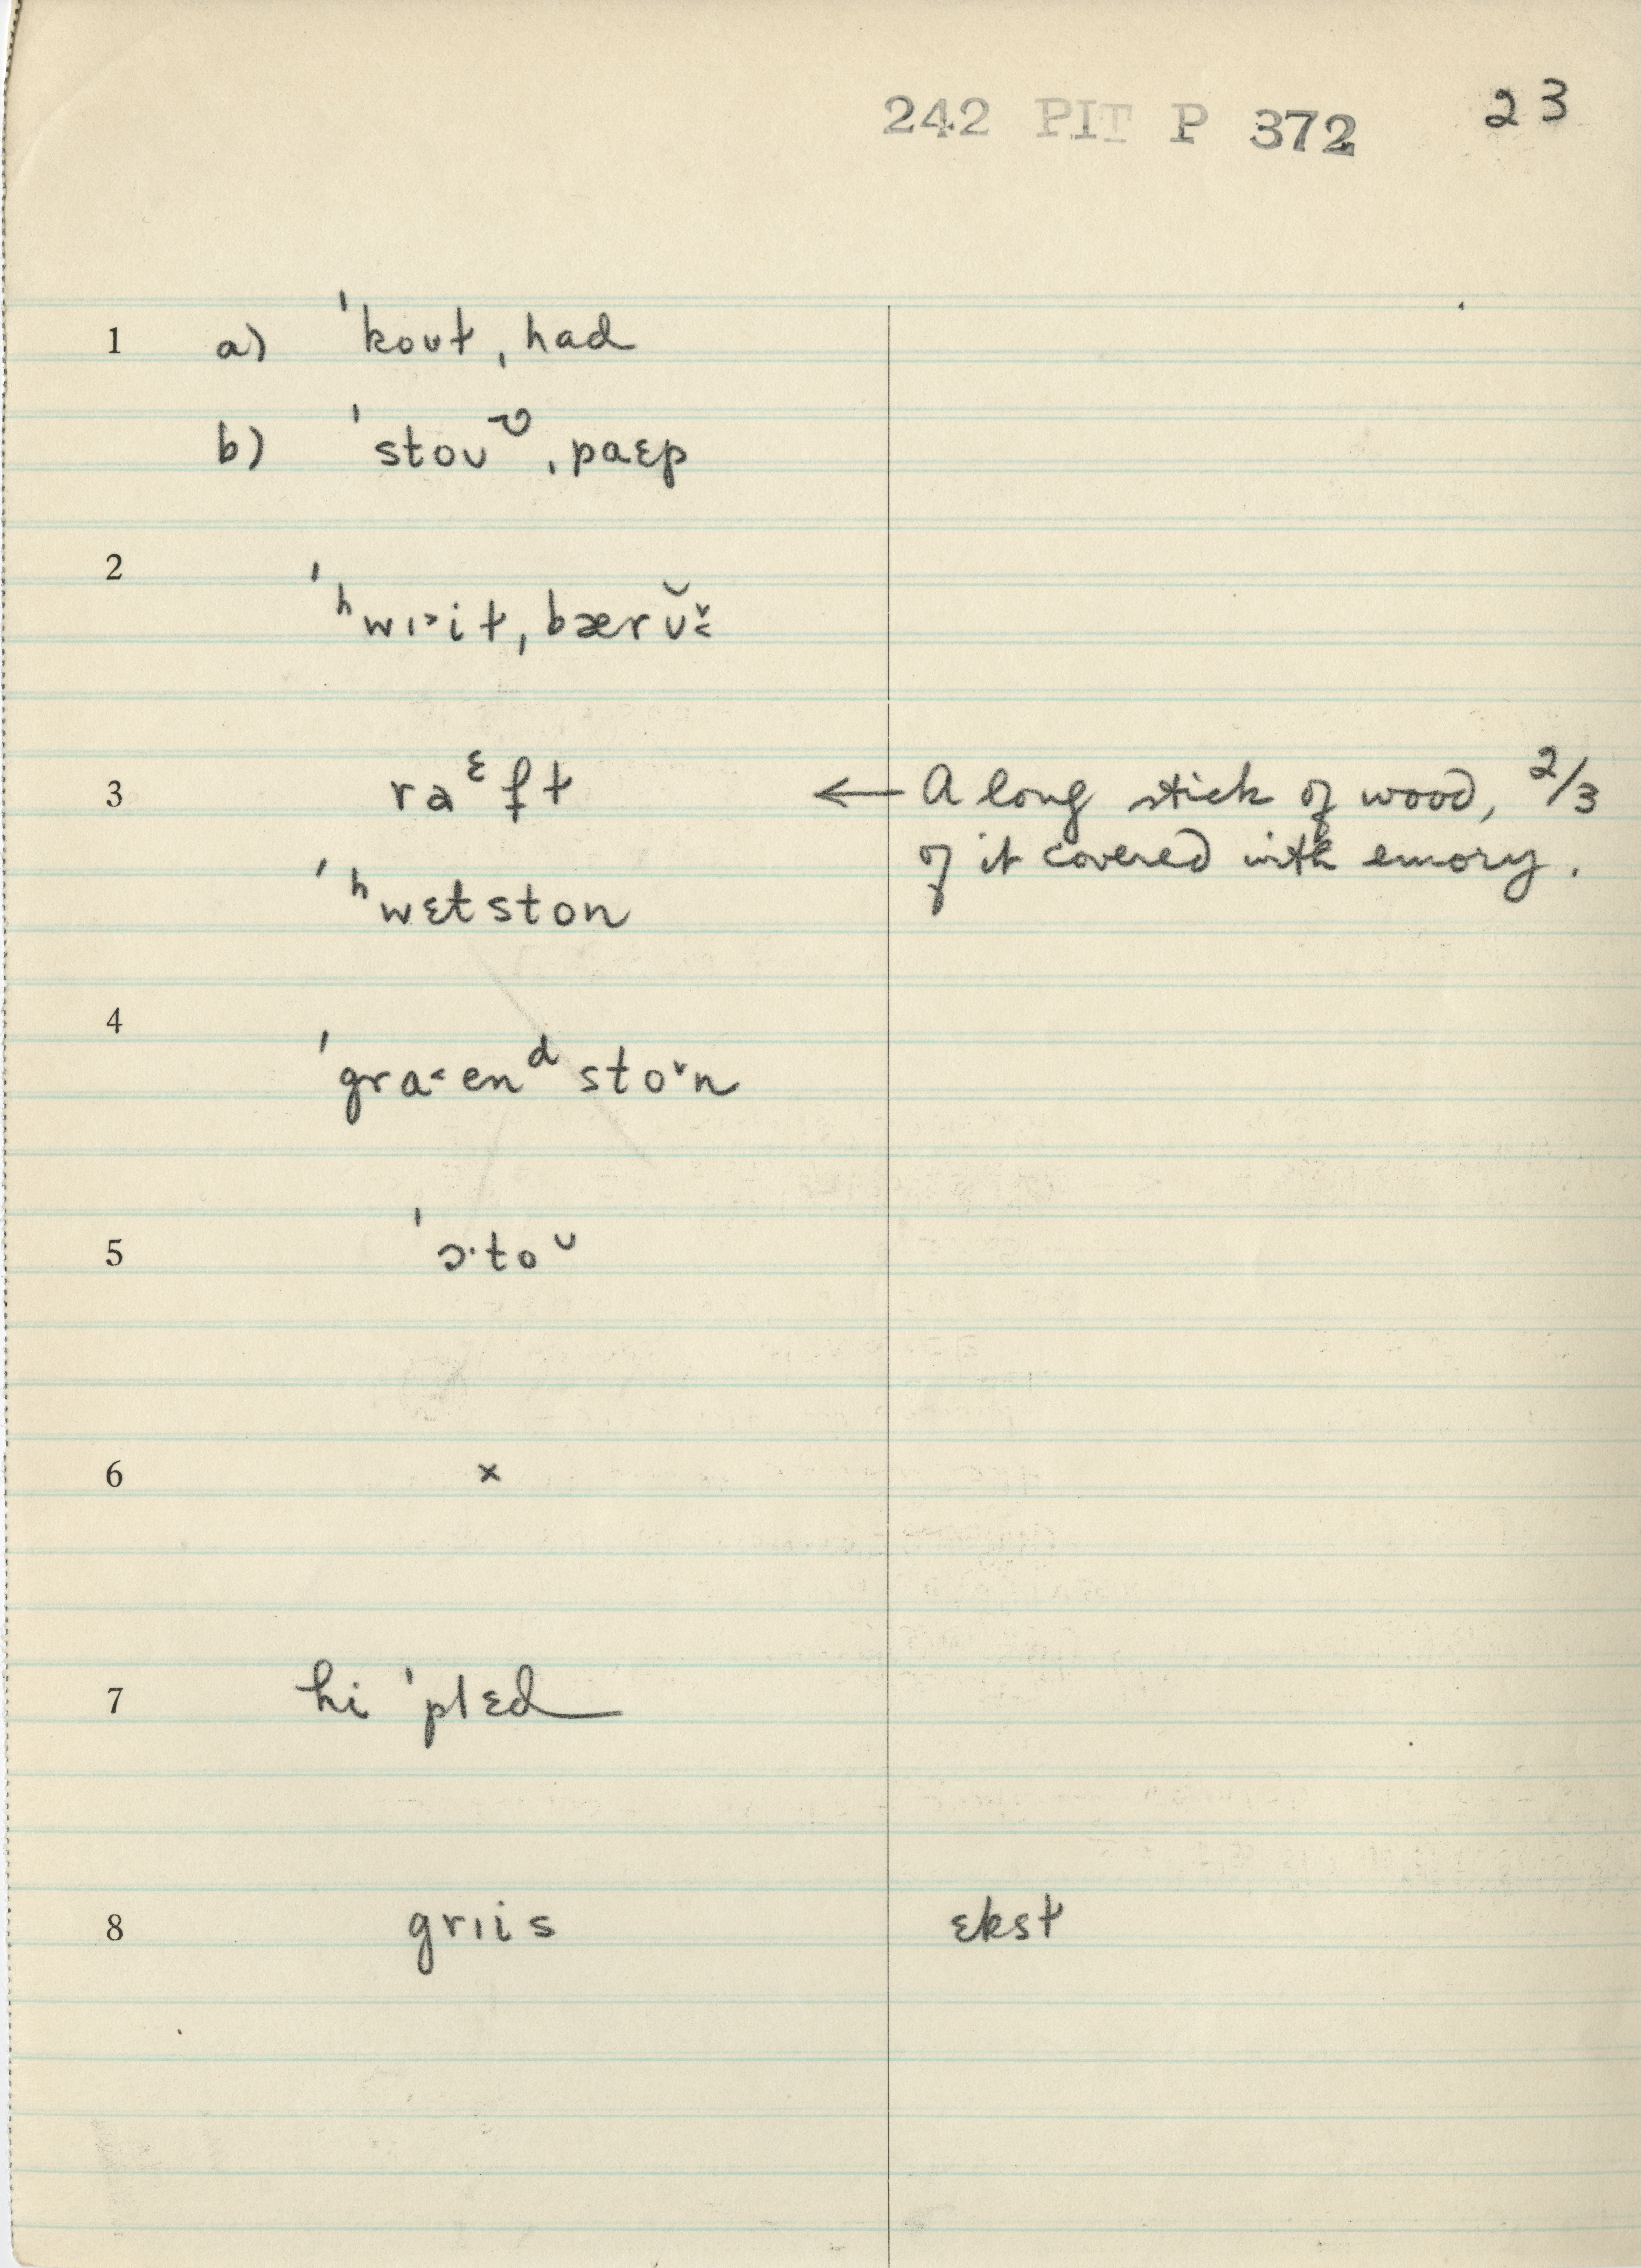 242 PIT P 372 23
1 a) ˈkoʊt, had
b) ˈstoʊᶹ, paɛp
2 ˈʰwɪ˃it, bærŭ˅˂
3 raᵋft ← A long stick of wood, 2/3
of it covered with emory.
ˈʰwɛtston
4 ˈgra˂enᵈsto˅n
5 ˈɔ·toᶸ
6 ×
7 hi ˈplɛd
8 grɪis ɛkst